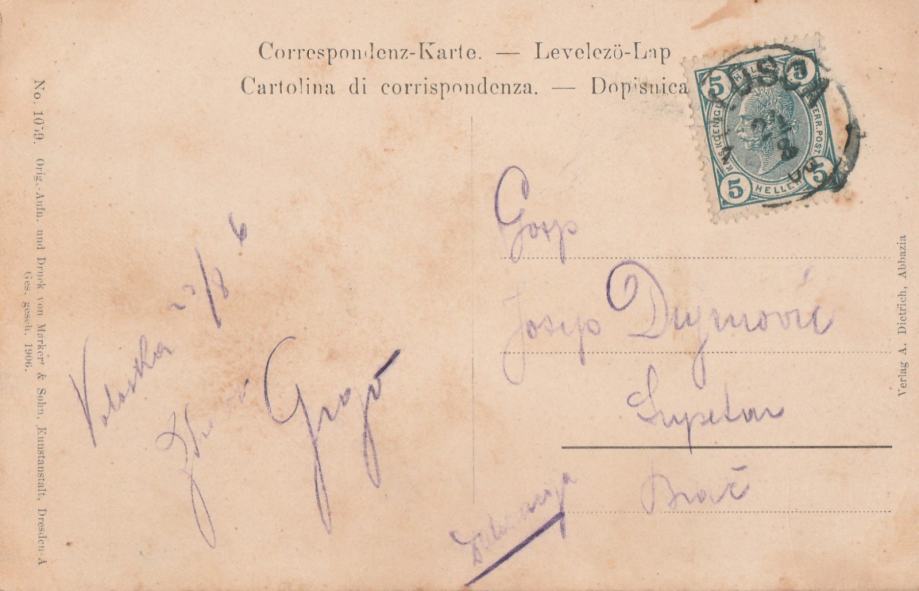 Correspondenz-Karte. — Levelezö-Lap
Cartolina di corrispondenza. — Dopisnica
No. 1079. Orig.-Aufn. und Druck von Markert & Sohn, Kunstanstalt, Dresden-A
Ges. gesch. 1906.
5 HELLER 5
KAIS. KOENIGL. OESTERR. POST
5 HELLER 5
Gosp
Josip Dujmović
Supetar
Brač
Dalmacija
Voloska 23/8 6
Grgo
Verlag A. Dietrich, Abbazia